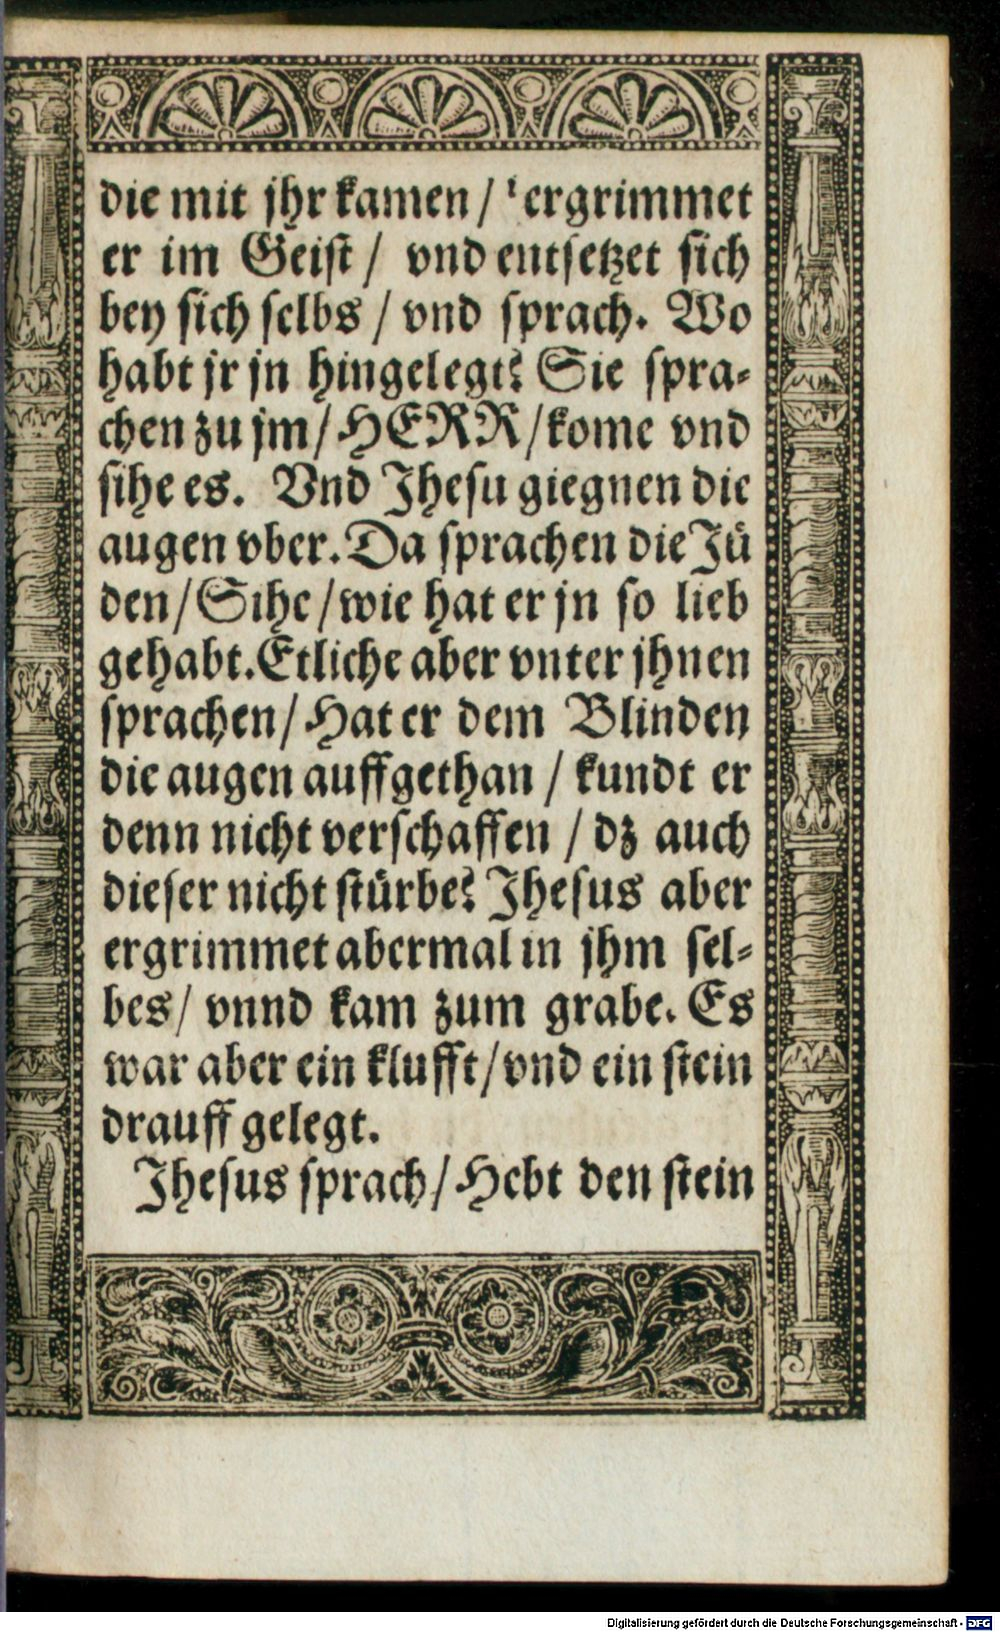 die mit jhr kamen / ergrimmet
er im Geist / vnd entsetzet sich
bey sich selbs / vnd sprach. Wo
habt jr jn hingelegt? Sie spra-
chen zu jm / HERR / kome vnd
sihe es. Vnd Jhesu giegnen die
augen vber. Da sprachen die Jü
den / Sihe / wie hat er jn so lieb
gehabt. Etliche aber vnter jhnen
sprachen / Hat er dem Blinden
die augen auffgethan / kundt er
denn nicht verschaffen / dz auch
dieser nicht stürbe? Jhesus aber
ergrimmet abermal in jhm sel-
bes / vnnd kam zum grabe. Es
war aber ein klufft / vnd ein stein
drauff gelegt.
Jhesus sprach / Hebt den stein
Digitalisierung gefördert durch die Deutsche Forschungsgemeinschaft - DFG